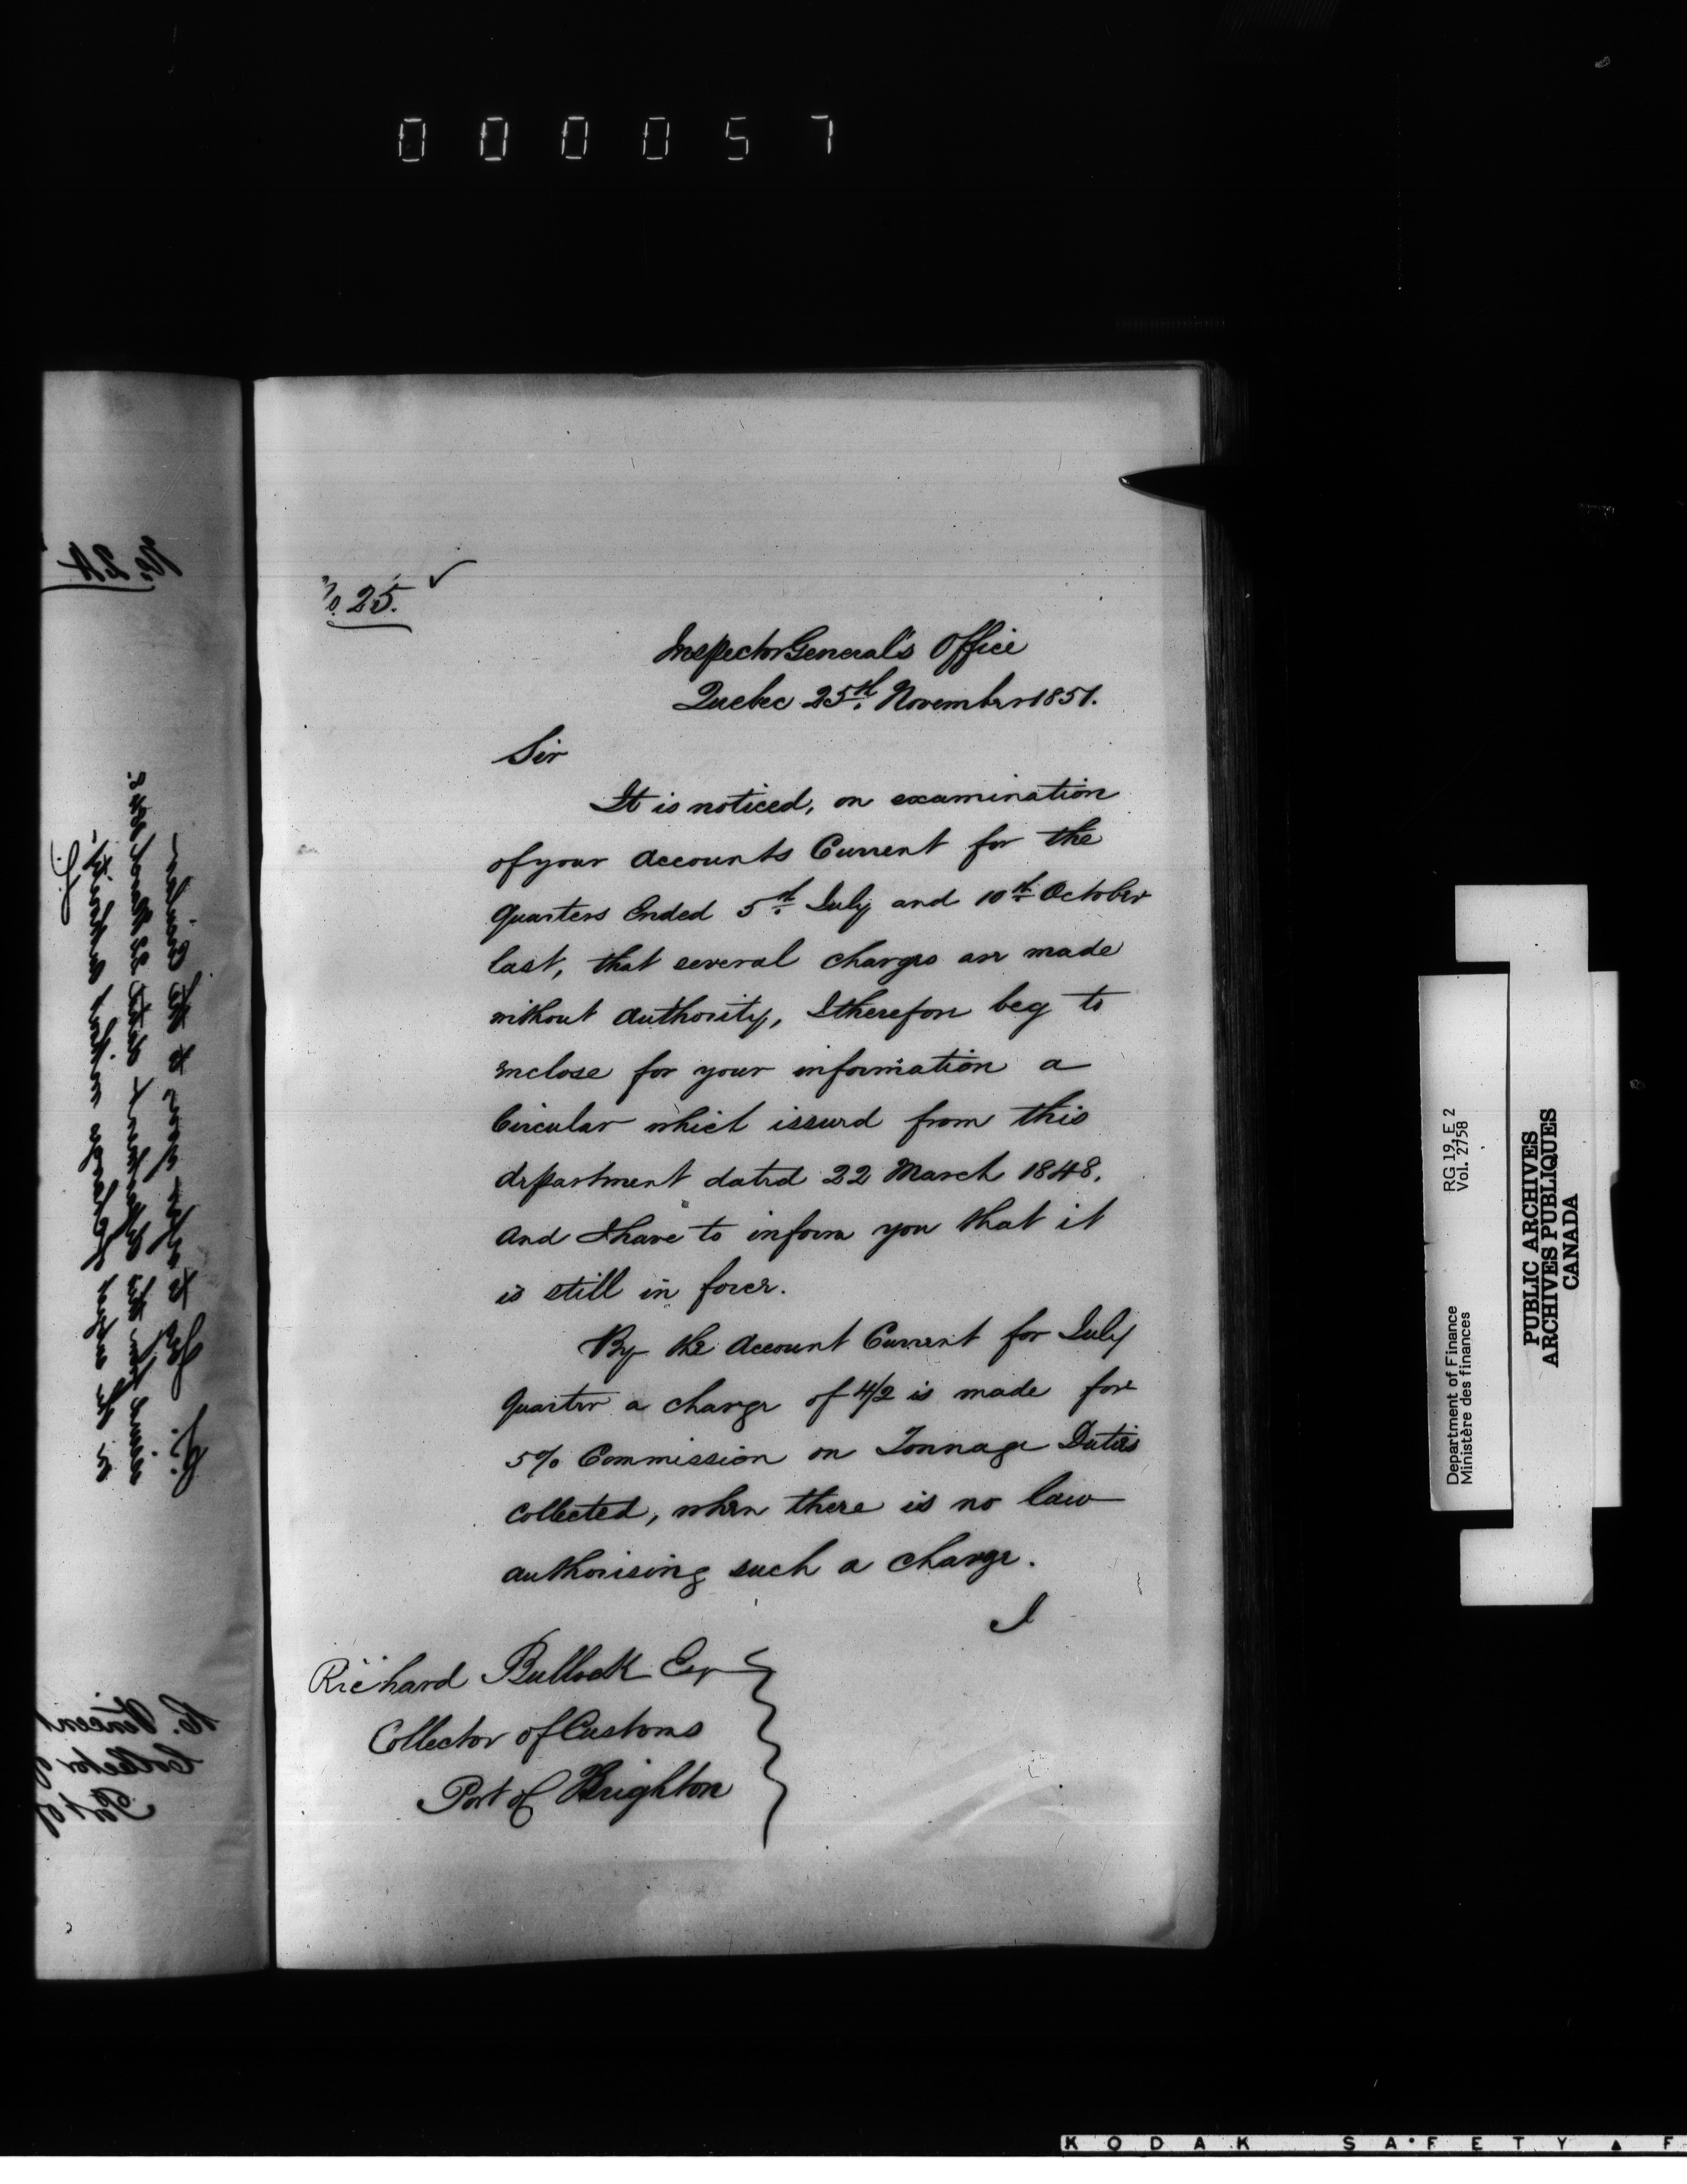 000057
No. 24
No. 25. ✓
Inspector General's Office
Quebec 25th. November 1851.
Sir
It is noticed, on examination
of your Accounts Current for the
Quarters Ended 5th. July and 10th. October
last, that several charges are made
without authority, I therefore beg to
enclose for your information a
Circular which issued from this
department dated 22 March 1848.
And I have to inform you that it
is still in force.
By the Account Current for July
Quarter a charge of 4/2 is made for
5% Commission on Tonnage Duties
Collected, when there is no law
authorising such a charge.
I
Richard Bullock Esqr
Collector of Customs
Port of Brighton
RG 19, E 2
Vol. 2758
Department of Finance
Ministère des finances
PUBLIC ARCHIVES
ARCHIVES PUBLIQUES
CANADA
KODAK SAFETY F